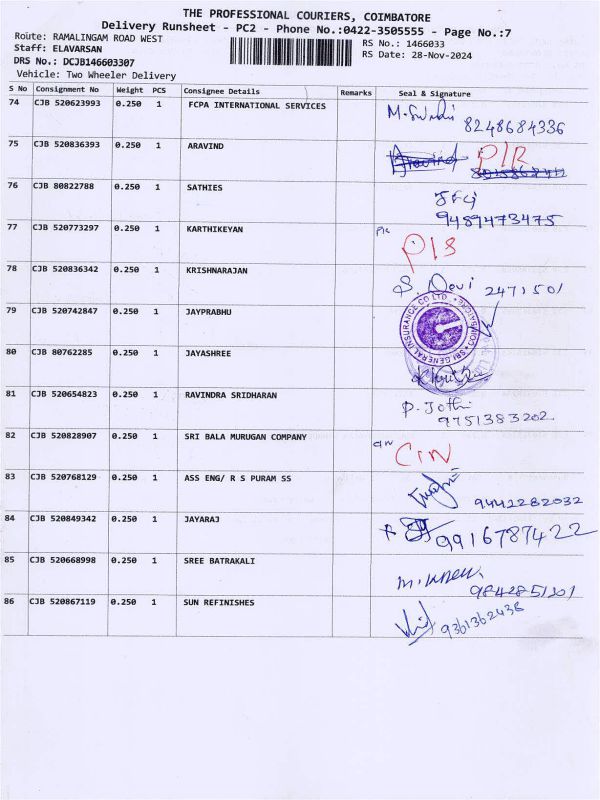 THE PROFESSIONAL COURIERS, COIMBATORE
Delivery Runsheet - PC2 - Phone No.:0422-3505555 - Page No.:7
Route: RAMALINGAM ROAD WEST
RS No.: 1466033
Staff: ELAVARSAN
RS Date: 28-Nov-2024
DRS No.: DCJB146603307
Vehicle: Two Wheeler Delivery
S No Consignment No Weight PCS Consignee Details Remarks Seal & Signature
74 CJB 520623993 0.250 1 FCPA INTERNATIONAL SERVICES 8248684336
75 CJB 520836393 0.250 1 ARAVIND
76 CJB 80822788 0.250 1 SATHIES 9489473475
77 CJB 520773297 0.250 1 KARTHIKEYAN
78 CJB 520836342 0.250 1 KRISHNARAJAN S. Devi 2471501
79 CJB 520742847 0.250 1 JAYPRABHU
SRI GENERAL INSURANCE CO LTD
80 CJB 80762285 0.250 1 JAYASHREE
81 CJB 520654823 0.250 1 RAVINDRA SRIDHARAN P. Jothi
9751383202
82 CJB 520828907 0.250 1 SRI BALA MURUGAN COMPANY
83 CJB 520768129 0.250 1 ASS ENG/ R S PURAM SS 9442282032
84 CJB 520849342 0.250 1 JAYARAJ 9916787422
85 CJB 520668998 0.250 1 SREE BATRAKALI
9842851201
86 CJB 520867119 0.250 1 SUN REFINISHES 9361362436